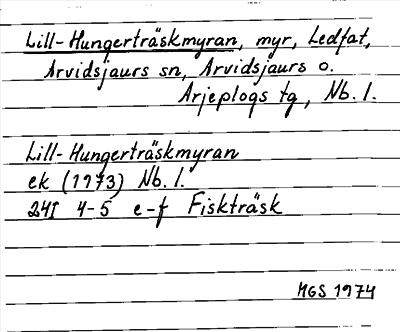 Lill-Hungerträskmyran, myr, Ledfat,
Arvidsjaurs sn, Arvidsjaurs o.
Arjeplogs tg, Nb. l.
Lill-Hungerträskmyran
ek (1973) Nb. l.
24I 4-5 e-f Fiskträsk
MGS 1974